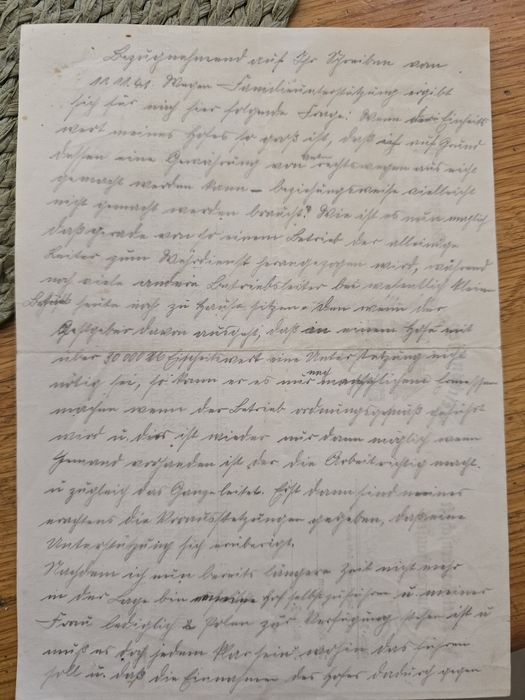 Bezugnehmend auf Ihr Schreiben vom
11.11.41 Wegen Familienunterstützung ergibt
sich für mich hier folgende Frage: Wenn der Einheits
wert meines Hofes so groß ist, daß auf Grund
dessen eine Gewährung von rechtswegen aus nicht
gemacht werden kann – beziehungsweise vielleicht
nicht gemacht werden braucht? Wie ist es nun möglich
daß gerade von so einem Betrieb der alleinige
Leiter zum Wehrdienst herangezogen wird, während
noch viele andere Betriebsleiter bei wesentlich klein
heute noch zu Hause sitzen. Den wenn der
davon ausgeht, daß in einem Hofe mit
über 30 000 Einheitswert eine Unterstützung nicht
nötig sei, so kann er es nur nach menschlichem Ermessen
machen wenn der Betrieb ordnungsgemäß geführt
wird u. dies ist wieder nur dann möglich wenn
Jemand vorhanden ist der die Arbeit richtig macht.
u zugleich das Ganze leitet. Erst dann sind meines
erachtens die Voraussetzungen gegeben, daß eine
Unterstützung sich erübrigt.
Nachdem ich nun bereits längere Zeit nicht mehr
in der Lage bin Hof selbst zu führen u. meiner
Frau lediglich 2 Polen zur Verfügung stehen ist u
muß es doch jedem klar sein wohin das führen
soll u. daß die Einnahmen des Hofes dadurch gegen